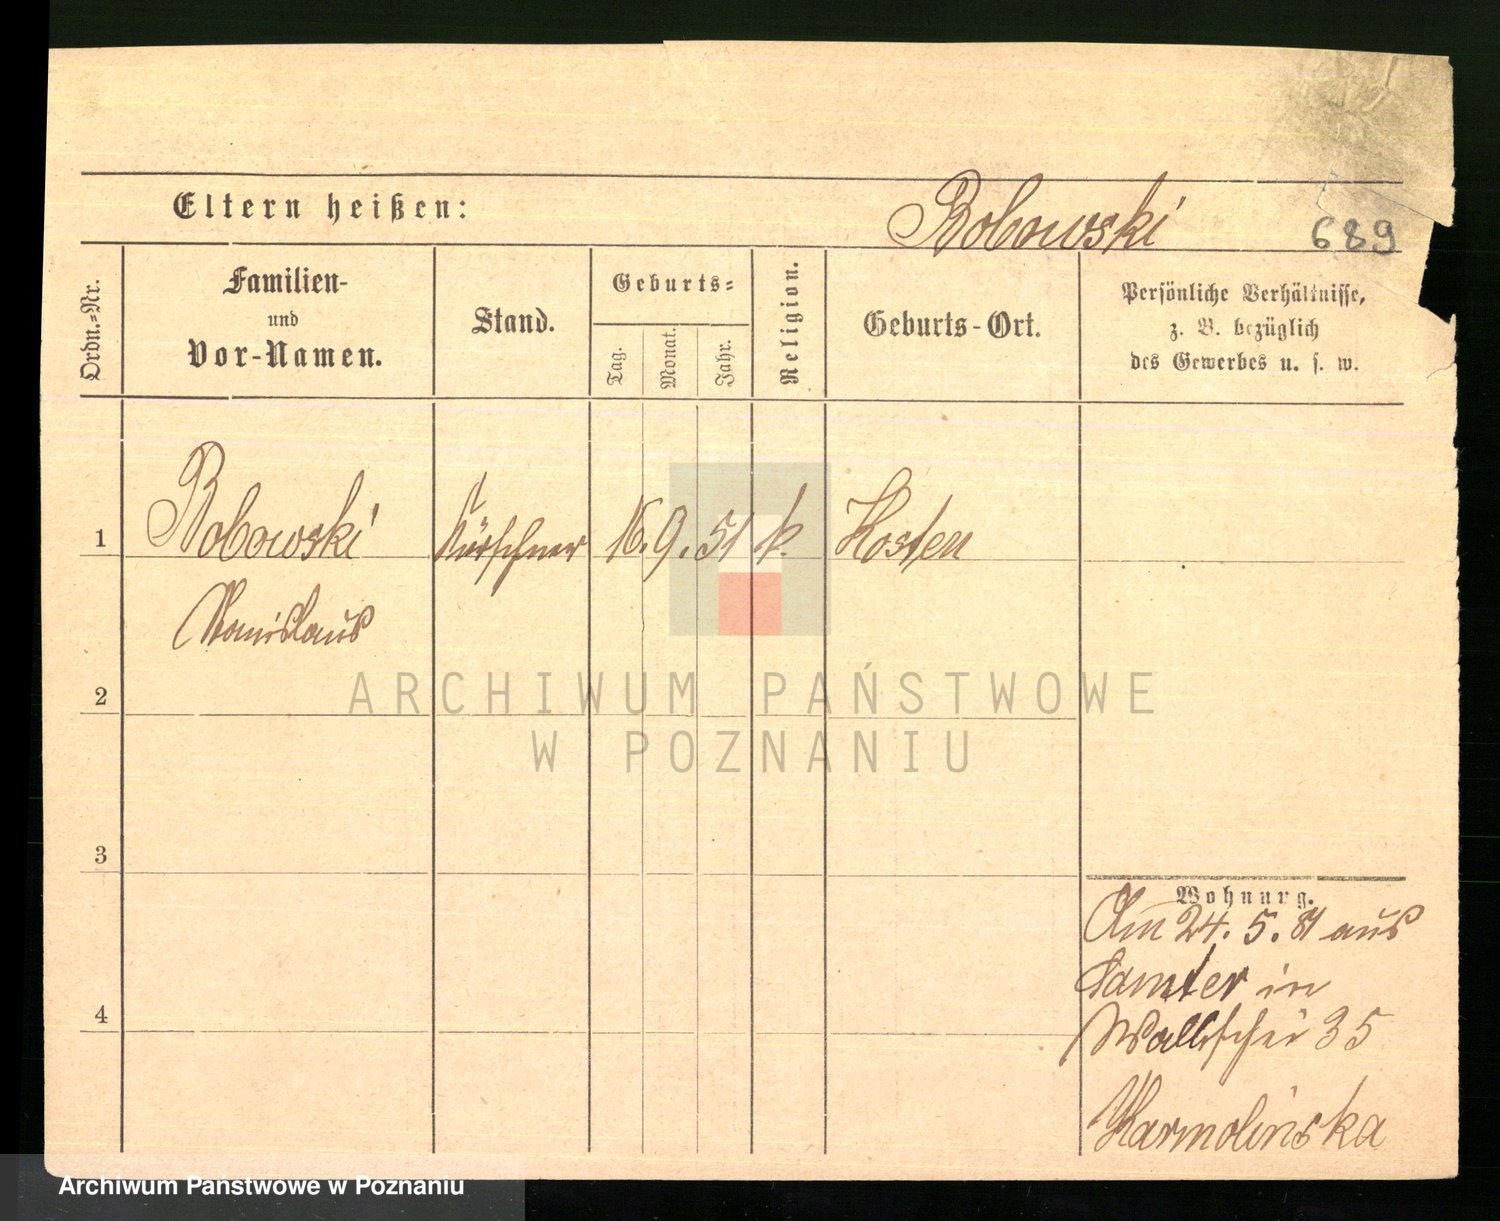 Eltern heißen:
Bobowski
689
Ordn.=Nr.
Familien-
und
Vor-Namen.
Stand.
Geburts=
Tag.
Monat.
Jahr.
Religion.
Geburts-Ort.
Persönliche Verhältnisse,
z. B. bezüglich
des Gewerbes u. s. w.
1
Bobowski
Kürschner
16. 9. 51
k.
Kosten
Stanislaus
2
ARCHIWUM PAŃSTWOWE
W POZNANIU
3
Wohnung.
Am 24. 5. 81 aus
Samter in
4
Wallischei 35
Karmolinska
Archiwum Państwowe w Poznaniu